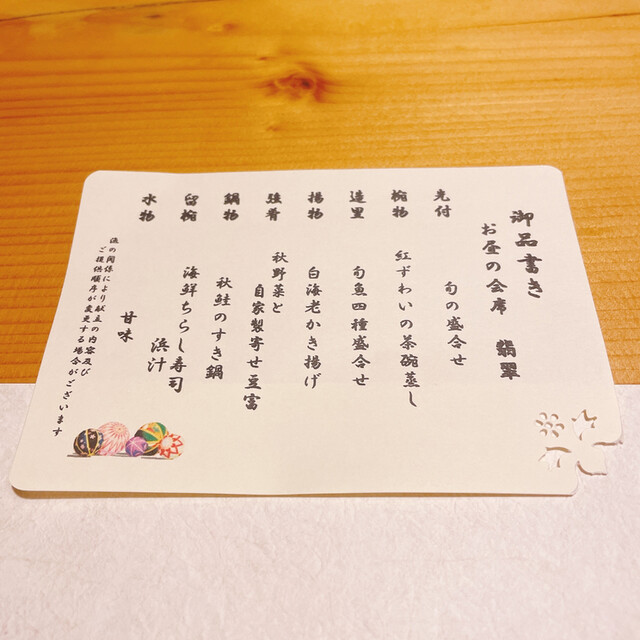 御品書き
お昼の会席 翡翠
先付 旬の盛合せ
椀物 紅ずわいの茶碗蒸し
造里 旬魚四種盛合せ
揚物 白海老かき揚げ
強肴 秋野菜と
自家製寄せ豆富
鍋物 秋鮭のすき鍋
留椀 海鮮ちらし寿司
浜汁
水物 甘味
流の関係により献立の内容及び
ご提供順序が変更する場合がございます